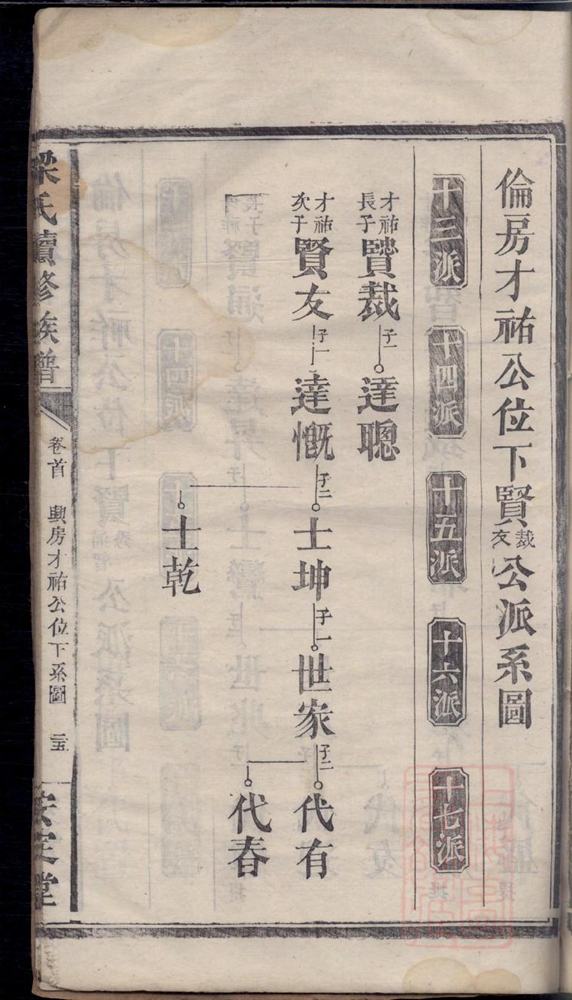 倫房才祐公位下賢裁友公派系圖
十三派 十四派 十五派 十六派 十七派
才祐長子賢裁 子一 達聰
才祐次子賢友 子一 達慨 子二 士坤 子一 世家 子二 代有
代春
士乾
梁氏續修族譜 卷首 房才祐公位下系圖 安定堂